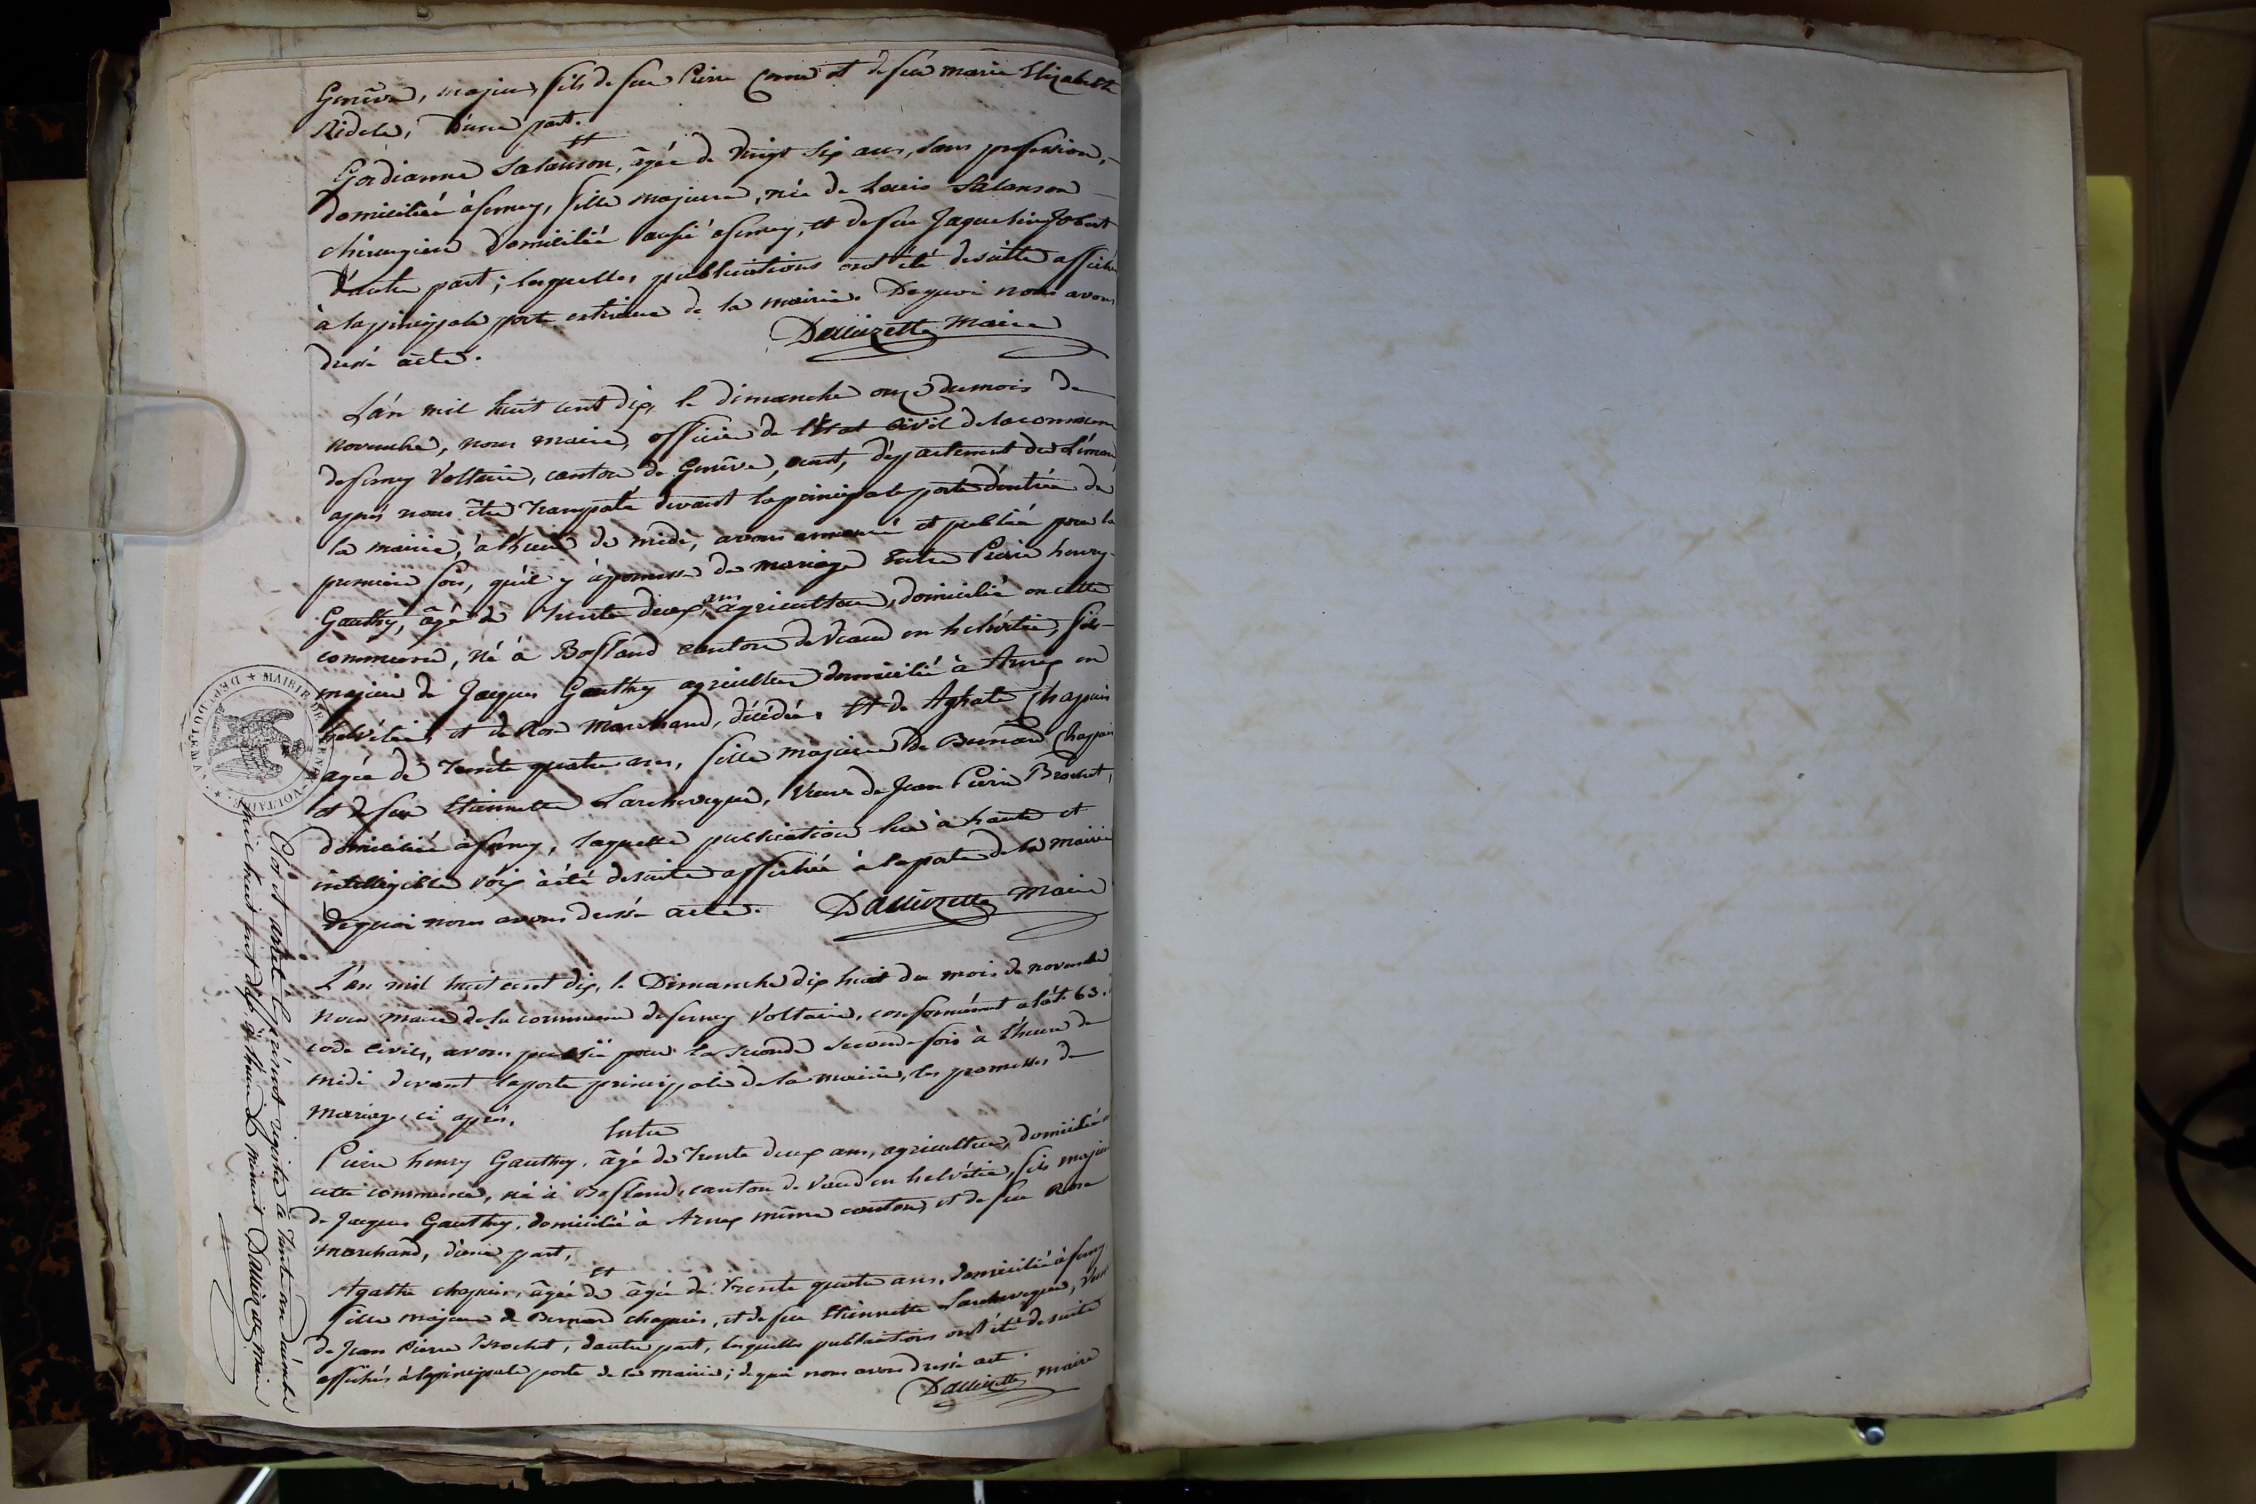 Genêve, majeur, fils de feu Pierre Come et de feu marie Elizabeth
Ridele, D'une part.
Et
Gordianne Salanson, âgée de Vingt Six ans, sans profession,
domiciliée à ferney, fille majeure, née de Louis Salanson
chirurgien Domicilié aussi à ferney, et de feu Jaqueline Jobert
D'autre part; lesquelles publications ont été desuitte affichées
à la principale porte extrieure de la mairie. Dequoi nous avons
dressé acte. Dallizette Maire
L'an mil huit cent dix, le dimanche onze du mois de
novembre, nous maire, officier de l'Etat Civil de la commune
de ferney Voltaire, canton de Genêve, ouest, département du Léman,
après nous être transporté devant la principale porte d'entrée de
la mairie, à l'heure de midi, avons annoncé et publié pour la
premiere fois, qu'il y a promesse de mariage Entre Pierre henry
Gauthey, âgé de Trente deux ans agriculteur, domicilié en cette
commune, Né à Bofland canton de Vaud en helvétie, fils
majeur de Jacques Gauthey agriculteur domicilié à Arnex en
helvétie, et de Rose Marchand, décédée. Et de Aghate Chapuis
agée de Trente quatre ans, fille majeure de Bernard Chapuis
et de feue Etiennette Larcheveque, Veuve de Jean Pierre Brochet,
domiciliée à ferney, laquelle publication lue à haute et
intelligible voix à été desuite affichée à la porte de la mairie
Dequoi nous avons dressé acte. Dallizette Maire
L'an mil huit cent dix, le Dimanche dix huit du mois de novembre
Nous Maire de la commune de ferney Voltaire, conformément a l'at. 63.
code civil, avons publié pour la seconde seconde fois à l'heure de
midi devant la porte principale de la mairie, les promesses de
Mariage, ci après,
Entre
Pierre henry Gauthey, âgé de Trente deux ans, agriculteur, domicilié
cette commune, né à Bofland, canton de Vaud en helvétie, fils majeur
de Jacques Gauthey, domicilié à Arnex même canton, et de feu Rose
Marchand, d'une part,
et
Agathe chapuis, âgée de âgée de Trente quatre ans, domiciliée à ferney
fille majeure de Bernard chapuis, et de feu Etiennette Larcheveque, Veuve
de Jean Pierre Brochet, d'autre part, lesquelles publications ont été de suite
affichés à la principale porte de la mairie; de quoi nous avons dressé acte.
Dallizette maire
MAIRIE DE FERNEY-VOLTAIRE
Clos et arreté le présent registre le Trente un décembre
mil huit cent dix, à l'heure de minuit Dallizette Maire